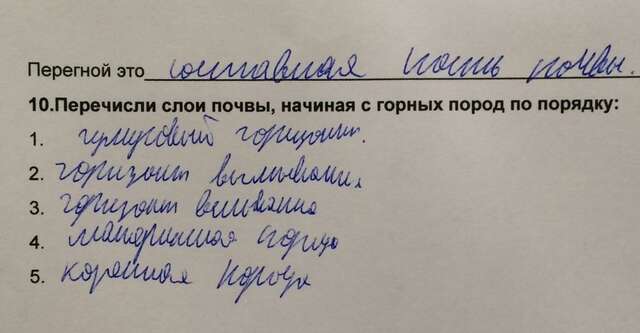 Перегной это составная часть почвы.
10.Перечисли слои почвы, начиная с горных пород по порядку:
1. гумусовый горизонт.
2. горизонт вымывания
3. горизонт вмывания
4. материнная порода
5. коренная порода